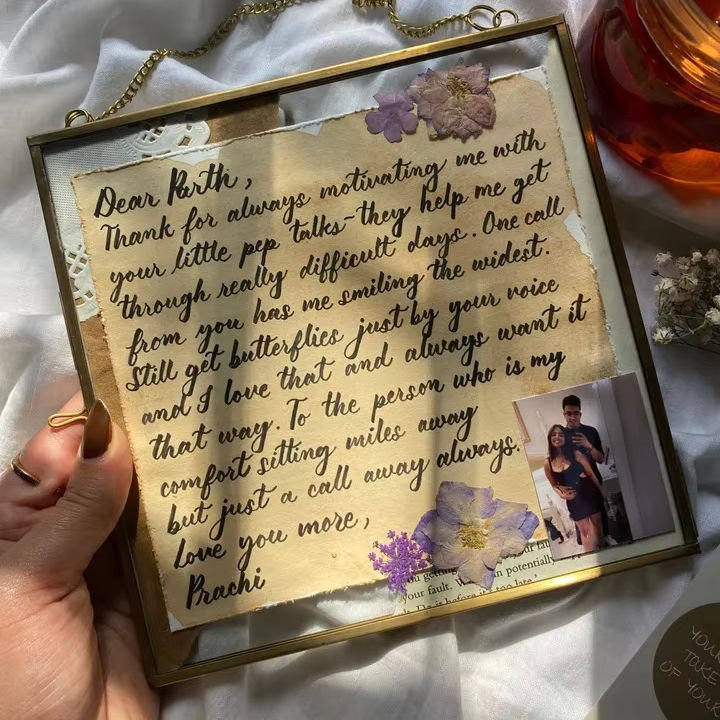 Dear Parth,
Thank for always motivating me with
your little pep talks-they help me get
through really difficult days. One call
from you has me smiling the widest.
Still get butterflies just by your voice
and I love that and always want it
that way. To the person who is my
comfort sitting miles away
but just a call away always.
Love you more,
Prachi
your fault. W
in potentially
Do it before it's too late.'
TAKE
OF YOUR